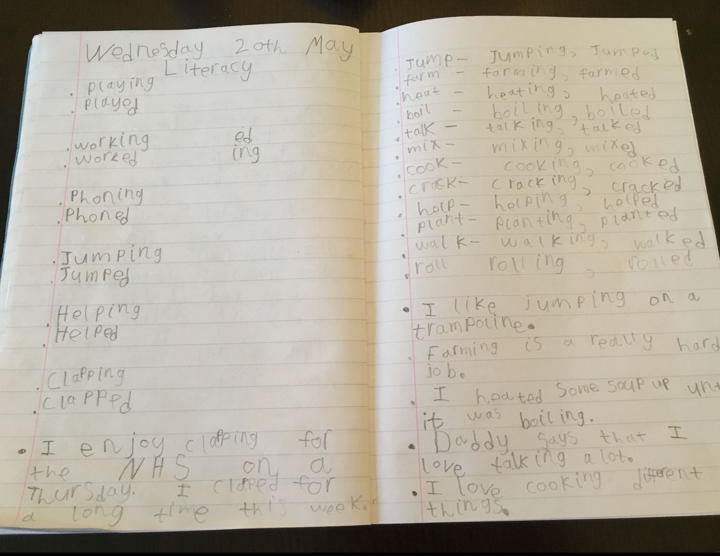 Wednesday 20th May
Literacy
. playing
. played
. working ed
. worked ing
. Phoning
. Phoned
. Jumping
. Jumped
. Helping
. Helped
. Clapping
. Clapped
• I enjoy clapping for
the NHS on a
Thursday. I clapped for
a long time this week.
. Jump- Jumping, Jumped
. farm - farming, farmed
. heat - heating, heated
. boil - boiling, boiled
. talk - talking, talked
. mix - mixing, mixed
. cook- cooking, cooked
. crack- cracking, cracked
. help - helping, helped
. plant - planting, planted
. walk- walking, walked
. roll rolling , rolled
• I like jumping on a
trampoline.
. Farming is a really hard
job.
. I heated some soup up unt
it was boiling.
• Daddy says that I
love talking alot.
• I love cooking different
things.